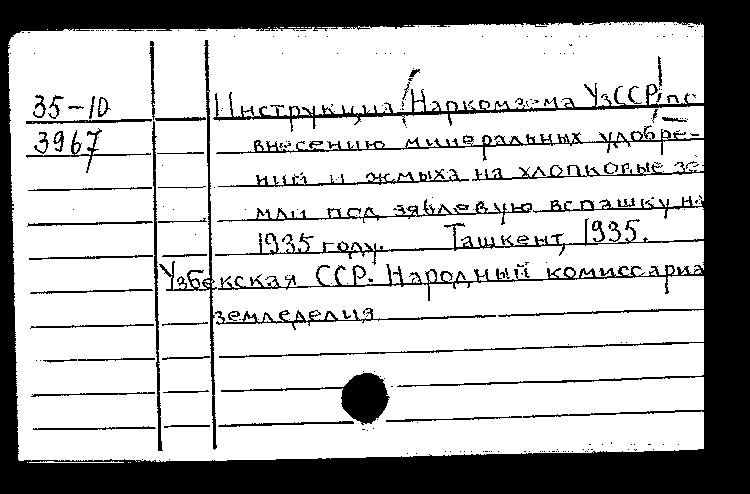 35-10 Инструкция (Наркомзема УзССР) по
3967 внесению минеральных удобре-
ний и жмыха на хлопковые зе-
мли под зяблевую вспашку на
1935 году. Ташкент, 1935.
Узбекская ССР. Народный комиссариа
земледелия